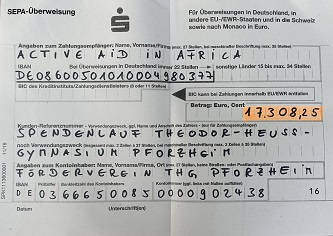 SEPA-Überweisung
Für Überweisungen in Deutschland, in
andere EU-/EWR-Staaten und in die Schweiz
sowie nach Monaco in Euro.
Angaben zum Zahlungsempfänger: Name, Vorname/Firma (max. 27 Stellen, bei maschineller Beschriftung max. 35 Stellen)
ACTIVE AID IN AFRICA
IBAN Bei Überweisungen in Deutschland immer 22 Stellen sonstige Länder 15 bis max. 34 Stellen
DE08600501010004980377
BIC des Kreditinstituts/Zahlungsdienstleisters (8 oder 11 Stellen)
BIC kann bei Zahlungen innerhalb EU/EWR entfallen
Betrag: Euro, Cent
17.308,25
Kunden-Referenznummer - Verwendungszweck, ggf. Name und Anschrift des Zahlers
SPENDENLAUF THEODOR-HEUSS-
noch Verwendungszweck (insgesamt max. 2 Zeilen à 27 Stellen, bei maschineller Beschriftung max. 2 Zeilen à 35 Stellen)
GYMNASIUM PFORZHEIM
Angaben zum Kontoinhaber: Name, Vorname/Firma, Ort (max. 27 Stellen, keine Straßen- oder Postfachangaben)
FÖRDERVEREIN THG PFORZHEIM
IBAN Prüfziffer Bankleitzahl des Kontoinhabers Kontonummer (ggf. links mit Nullen auffüllen)
DE03666500850000902438 16
Datum Unterschrift(en)